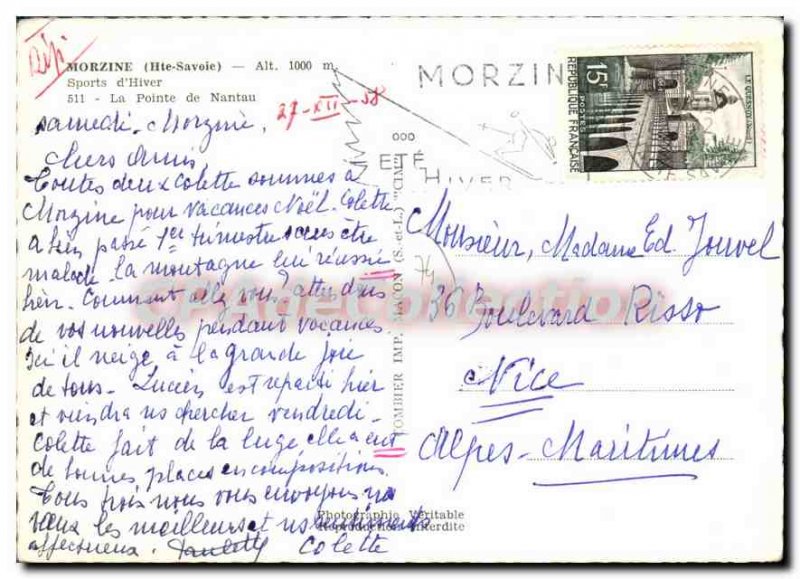 MORZINE (Hte-Savoie) — Alt. 1000 m.
Sports d'Hiver
511 - La Pointe de Nantau
27-XII-58
samedi. Morzine,
Chers Amis,
Toutes deux Colette sommes à
Morzine pour vacances Noël. Colette
a bien passé 1er trimestre sans être
malade. la montagne lui réussie
bien. Comment allez vous? attendons
de vos nouvelles pendant vacances
Ici il neige à la grande joie
de tous. Lucien est reparti hier
et viendra ns chercher vendredi.
Colette fait de la luge elle a eut
de bonnes places en compositions.
Tous trois nous vous envoyons nos
vœux les meilleurs et ns sentiments
affectueux. Paulette Colette
TOMBIER IMP. MACON (S.-et-L.) "CIM"
Photographie Véritable
Reproduction Interdite
MORZIN
ETÉ
HIVER
15F
REPUBLIQUE FRANÇAISE
POSTES
LE QUESNOY (Nord)
Monsieur, Madame Ed. Jouvel
36 Boulevard Risso
Nice
Alpes-Maritimes
CPA de Collection